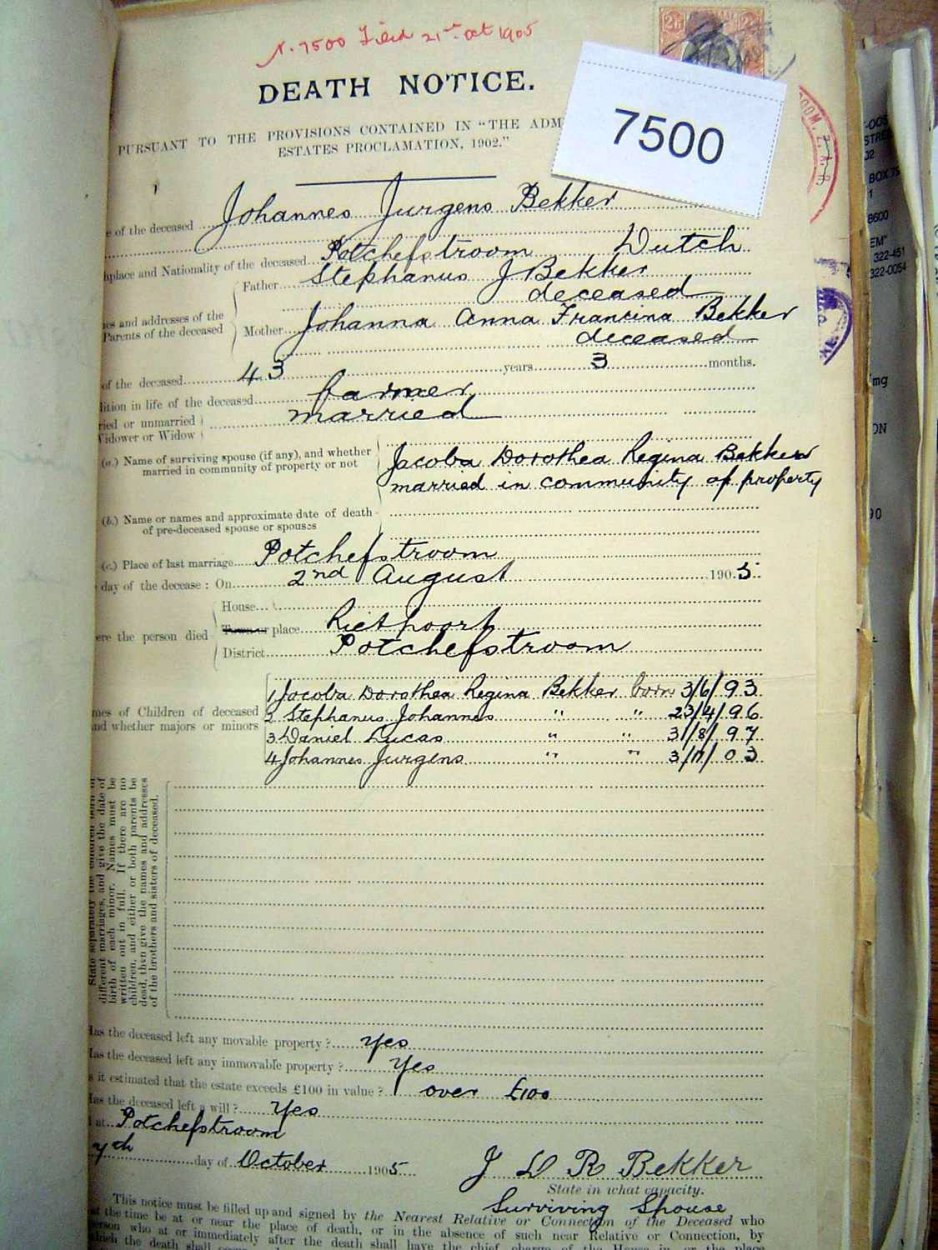 N. 7500 Filed 21st Oct 1905
DEATH NOTICE.
7500
PURSUANT TO THE PROVISIONS CONTAINED IN "THE ADM
ESTATES PROCLAMATION, 1902."
e of the deceased Johannes Jurgens Bekker
hplace and Nationality of the deceased Potchefstroom Dutch
Father Stephanus J Bekker
deceased
es and addresses of the
Parents of the deceased
Mother Johanna Anna Francina Bekker
deceased
of the deceased 43 years 3 months.
dition in life of the deceased farmer
ried or unmarried married
Widower or Widow
(a.) Name of surviving spouse (if any), and whether
married in community of property or not
Jacoba Dorothea Regina Bekker
married in community of property
(b.) Name or names and approximate date of death
of pre-deceased spouse or spouses
(c.) Place of last marriage Potchefstroom
day of the decease: On 2nd August 1905
House
ere the person died place Rietpoort
District Potchefstroom
mes of Children of deceased
nd whether majors or minors
1 Jacoba Dorothea Regina Bekker born 3/6/93
2 Stephanus Johannes " " 23/4/96
3 Daniel Lucas " " 31/8/97
4 Johannes Jurgens " " 3/11/03
State separately the children born of
different marriages, and give the date of
birth of each minor. Names must be
written out in full. If there are no
children, and either or both parents be
dead, then give the names and addresses
of the brothers and sisters of deceased.
Has the deceased left any movable property? Yes
Has the deceased left any immovable property? Yes
s it estimated that the estate exceeds £100 in value? over £100
Has the deceased left a will? Yes
at Potchefstroom
7th day of October 1905
J D R Bekker
State in what capacity.
Surviving Spouse
This notice must be filled up and signed by the Nearest Relative or Connection of the Deceased who
at the time be at or near the place of death, or in the absence of such near Relative or Connection, by
person who at or immediately after the death shall have the chief charge of the House in, or the place